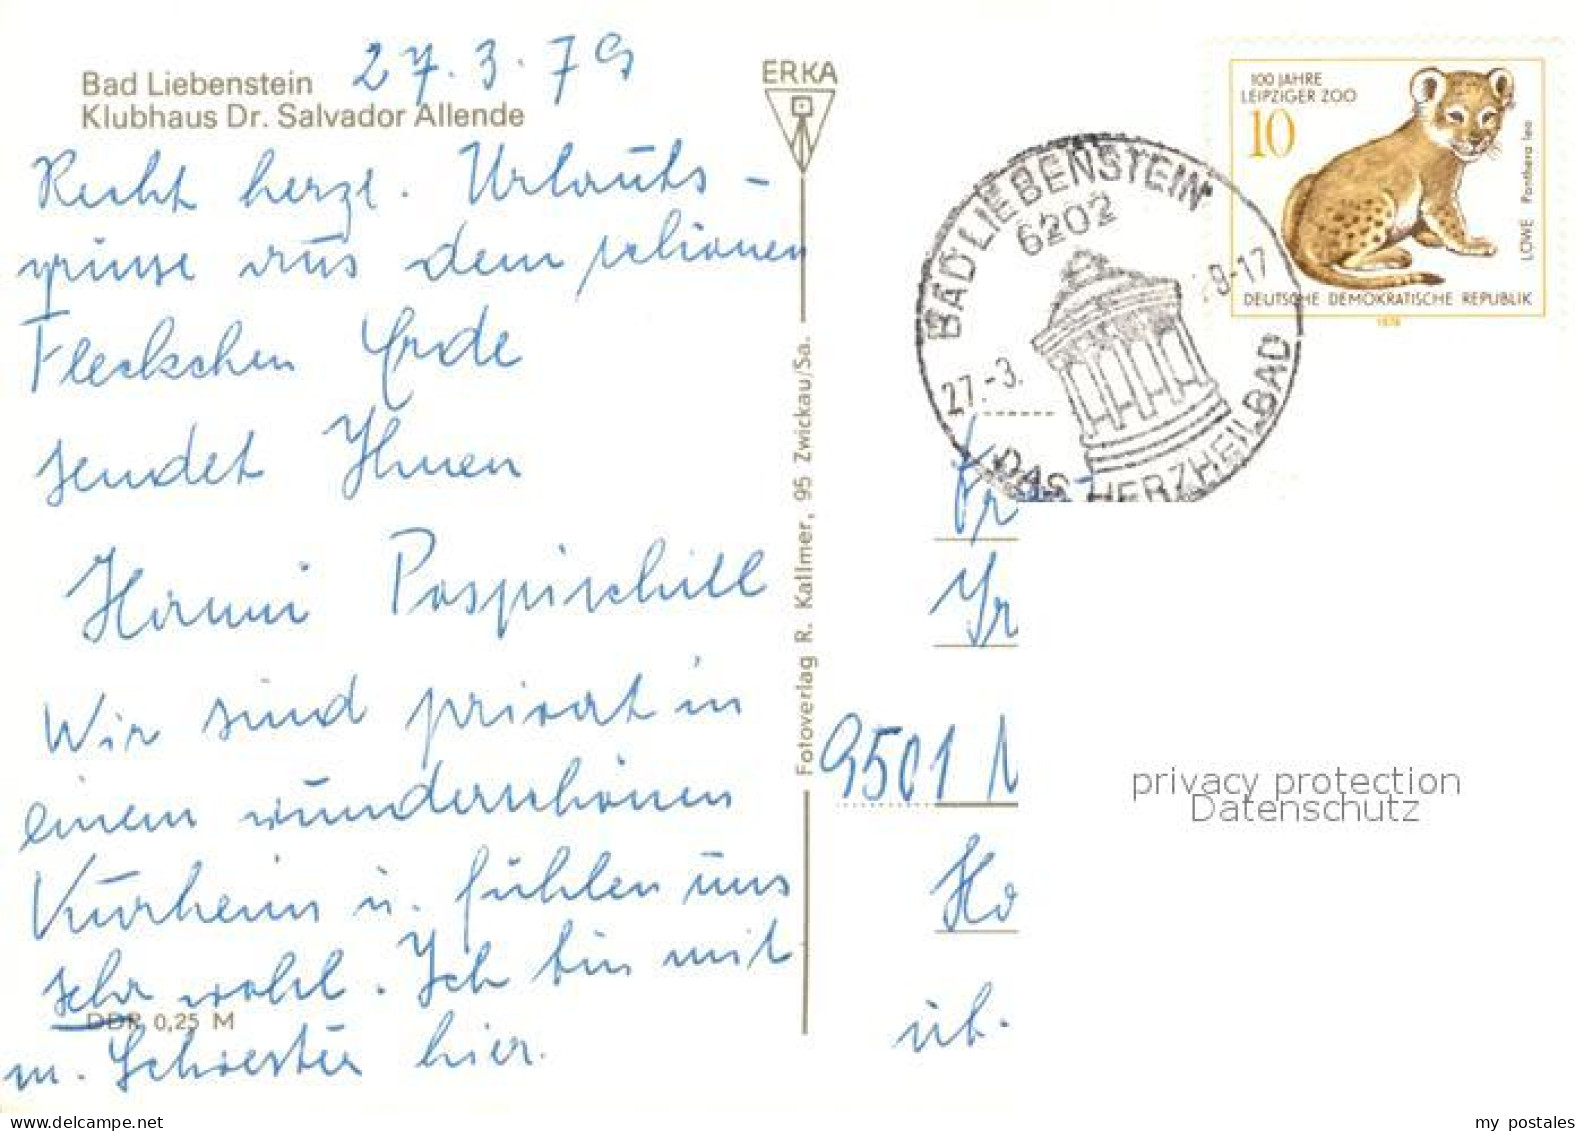 Bad Liebenstein
Klubhaus Dr. Salvador Allende
27.3.79
Recht herzl. Urlaubs-
grüsse aus dem schönen
Fleckchen Erde
sendet Ihnen
Hanni Pospischill
Wir sind privat in
einem wunderschönen
Kurheim u. fühlen uns
sehr wohl. Ich bin mit
m. Schwester hier.
DDR 0,25 M
ERKA
Fotoverlag R. Kallmer, 95 Zwickau/Sa.
BAD LIEBENSTEIN
6202
27.-3.
9-17
DAS HERZHEILBAD
100 JAHRE
LEIPZIGER ZOO
10
LÖWE Panthera leo
DEUTSCHE DEMOKRATISCHE REPUBLIK
1978
Fr
9501
Ho
üb.
privacy protection
Datenschutz
my postales